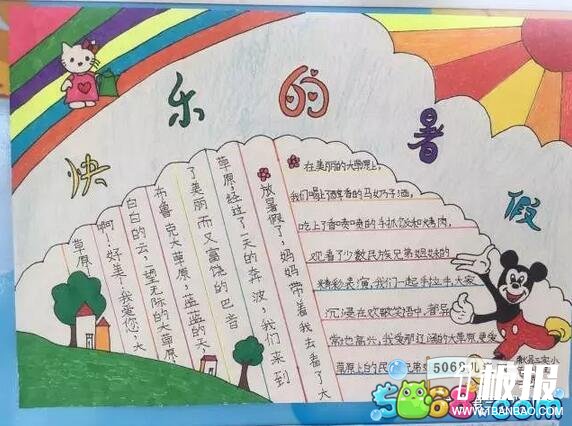 快乐的暑假
放暑假了,妈妈带着我去看了大
草原,经过了一天的奔波,我们来到
了美丽而又富饶的巴音
布鲁克大草原,蓝蓝的天,
白白的云,一望无际的大草原
啊!好美!我爱您,大
草原!
在美丽的大草原上,
我们喝上了醇香的马奶子酒,
吃上了香喷喷的手抓饭和烤肉,
观看了少数民族兄弟姐妹的
精彩表演,我们一起手拉手,大家
沉浸在欢歌笑语中,都异
常地高兴,我爱那辽阔的大草原,更爱
草原上的民
三实小
5068儿
板报
5068.com
WWW.TBANBAO.COM